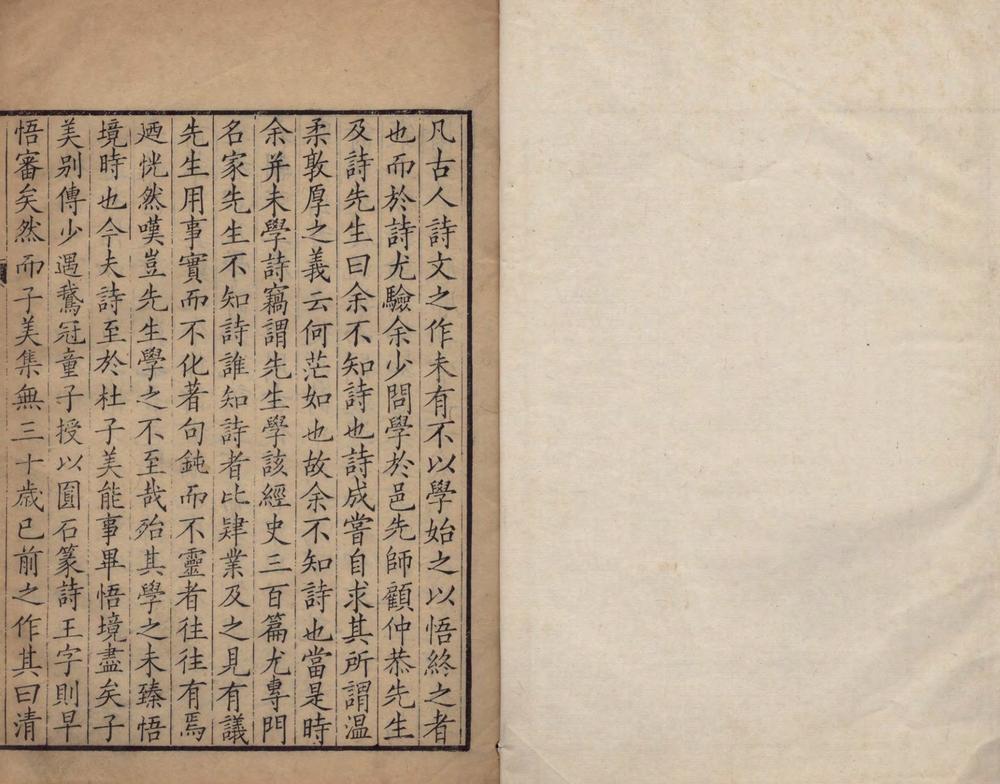 凡古人詩文之作未有不以學始之以悟終之者
也而於詩尤驗余少問學於邑先師顧仲恭先生
及詩先生曰余不知詩也詩成嘗自求其所謂温
柔敦厚之義云何茫如也故余不知詩也當是時
余并未學詩竊謂先生學該經史三百篇尤專門
名家先生不知詩誰知詩者比肄業及之見有議
先生用事實而不化著句鈍而不靈者往往有焉
廼恍然嘆豈先生學之不至哉殆其學之未臻悟
境時也今夫詩至於杜子美能事畢悟境盡矣子
美别傳少遇鵞冠童子授以圎石篆詩王字則早
悟審矣然而子美集無三十歲已前之作其曰清